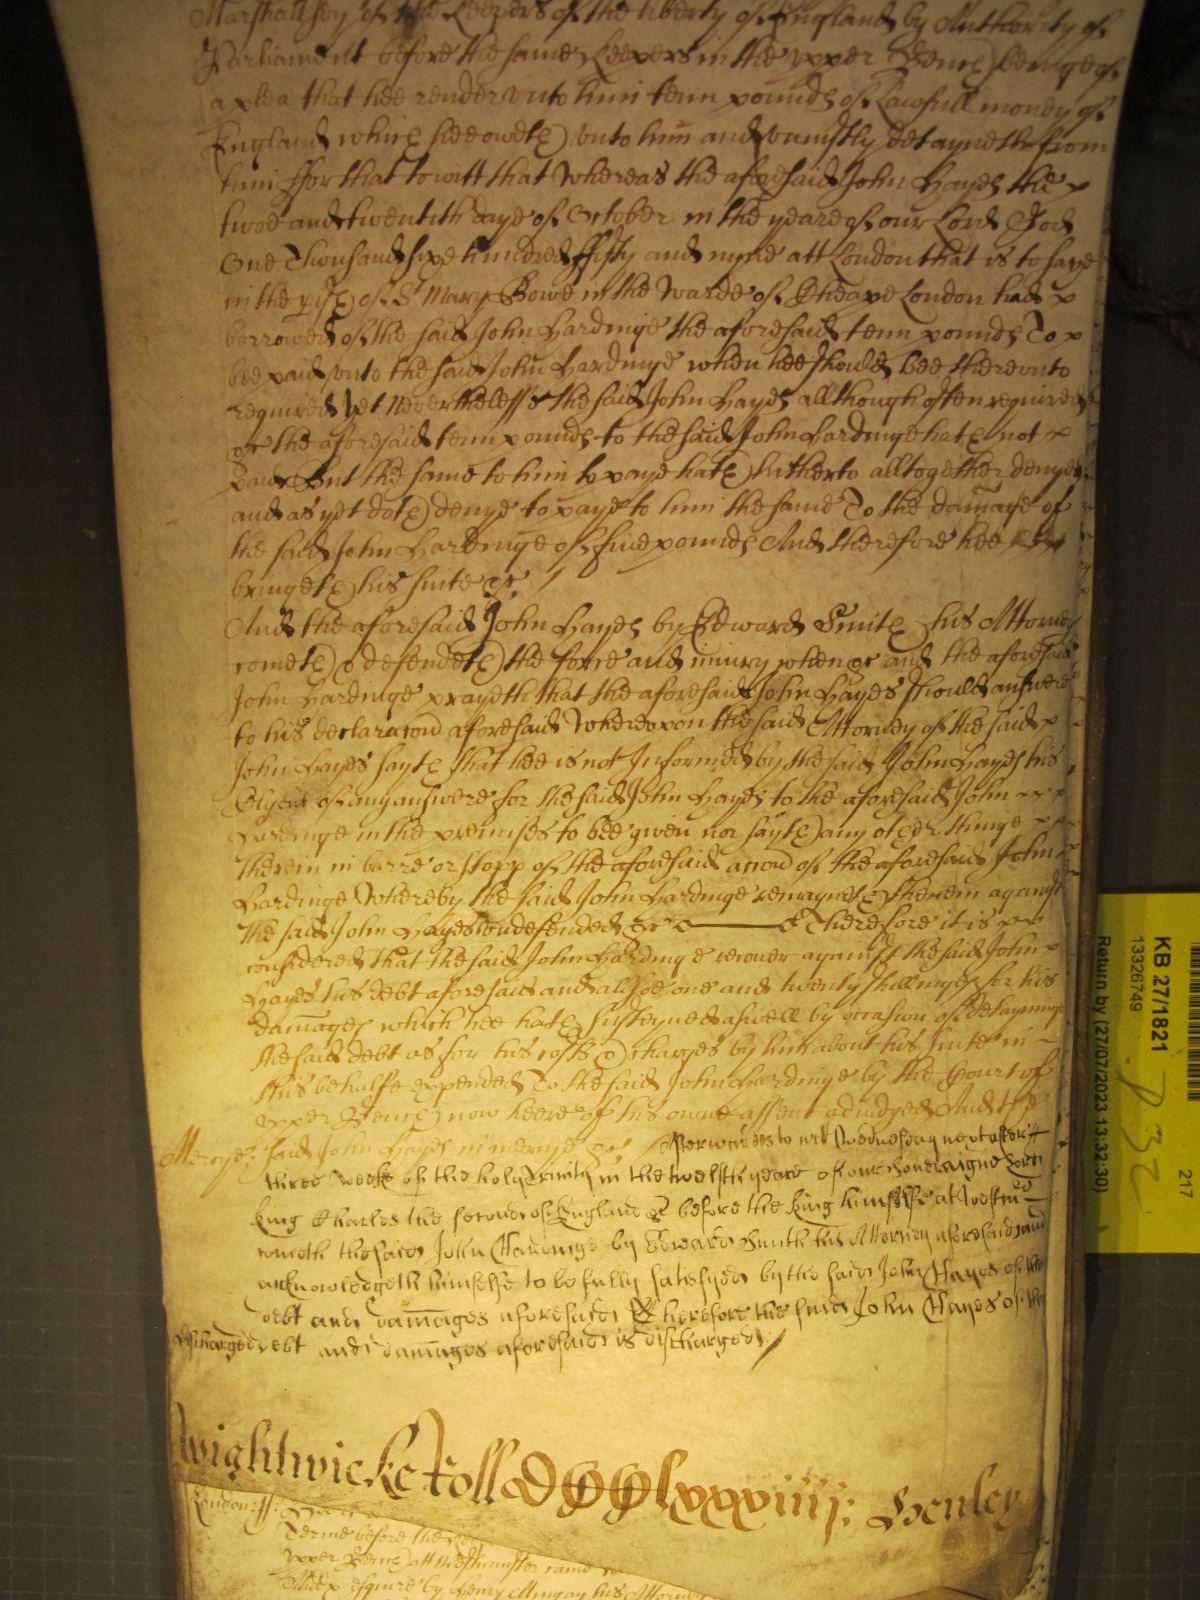 Marshallsey of the Keepers of the liberty of England by Authority of
Parliament before the same Keepers in the upper Bench beinge of
a plea that hee render unto him tenn pounds of Lawfull money of
England which hee oweth unto him and uniustly detayneth from
him ffor that to witt that Whereas the aforesaid John Hayes the
twoe and twentith daye of October in the yeare of our Lord God
One Thousand sixe hundred ffifty and nyne att London that is to saye
in the pish of St Mary Bowe in the Warde of Cheape London had
borrowed of the said John Hardinge the aforesaid tenn pounds To
bee paid unto the said John Hardinge when hee should bee thereunto
required Yet Neverthelesse the said John Hayes allthough often required
&c the aforesaid tenn pounds to the said John Hardinge hath not
Paid But the same to him to paye hath hitherto alltogether denyed
and as yet doth denye to paye to him the same To the damage of
the said John Hardinge of five pounds And therefore hee
bringeth his suite &c
And the aforesaid John Hayes by Edward Smith his Attorney
cometh & defendeth the force and iniury when &c and the aforesaid
John Hardinge prayeth that the aforesaid John Hayes should answere
to his declaracon aforesaid Whereupon the said Attorney of the said
John Hayes sayth that hee is not Informed by the said John Hayes his
Clyent of any answere for the said John Hayes to the aforesaid John
Hardinge in the premises to bee given nor sayth any other thinge
therein in barre or stopp of the aforesaid accon of the aforesaid John
Hardinge Whereby the said John Hardinge remayneth therein against
the said John Hayes undefended &c Therefore it is
considered that the said John Hardinge recover against the said John
Hayes his debt aforesaid and allsoe one and twenty shillinges for his
damages which hee hath susteyned aswell by occasion of detayninge
the said debt as for his costs & charges by him about his suite in
this behalfe expended To the said John Hardinge by the Court of
upper Bench now heere of his owne assent adiudged And the
Mercye: said John Hayes in mercye &c Afterwardes to witt Wednesday next after
three weeks of the holy Trinity in the twelfth yeare of our Soveraigne Lord
King Charles the second of England &c before the King himselfe at Westmr
cometh the said John Hardinge by Edward Smith his Attorney aforesaid and
acknowledgeth himselfe to be fully satisfyed by the said John Hayes of the
debt and damages aforesaid Therefore the said John Hayes of the
discharged debt and damages aforesaid is discharged
Wightwicke Roll DCClxxxiiij: Henley
London: ss:
Terme before the
upper Bench att Westminster came
esquire by Henry Mingay his Attorney
KB 27/1821
13326749
Return by (27/07/2023 13:32:30)
217